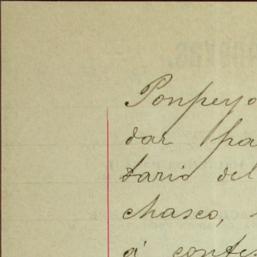 Ponpeyo
dar pa
tario del
chasco,
á contes